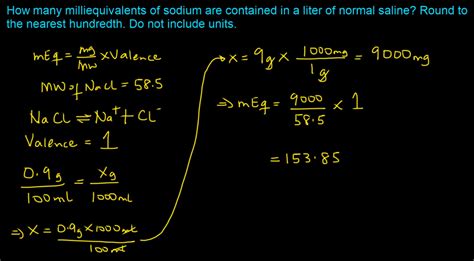 How many milliequivalents of sodium are contained in a liter of normal saline? Round to
the nearest hundredth. Do not include units.
mEq = mg/MW x Valence
MW of NaCl = 58.5
NaCl ⇌ Na⁺ + Cl⁻
Valence = 1
0.9g/100ml = xg/1000ml
⇒ x = 0.9g x 1000ml/100ml
x = 9g x 1000mg/1g = 9000mg
⇒ mEq = 9000/58.5 x 1
= 153.85